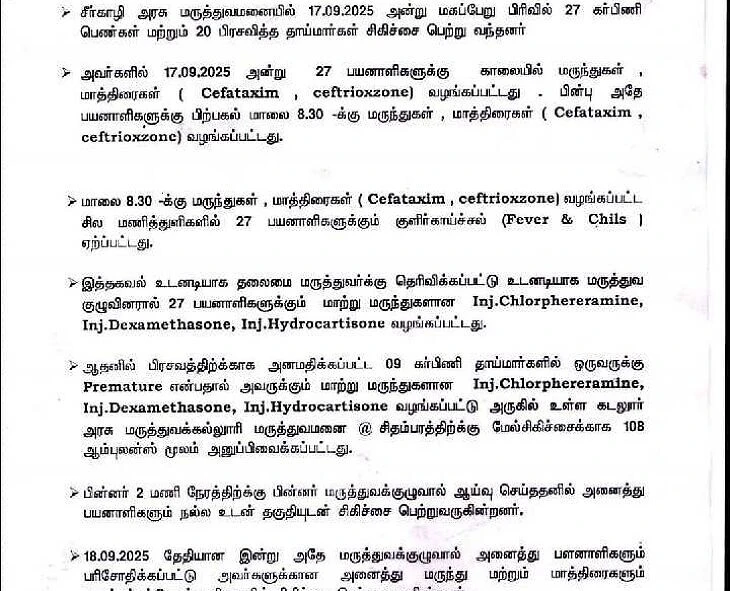 ➤ சீர்காழி அரசு மருத்துவமனையில் 17.09.2025 அன்று மகப்பேறு பிரிவில் 27 கர்பிணி
பெண்கள் மற்றும் 20 பிரசவித்த தாய்மார்கள் சிகிச்சை பெற்று வந்தனர்
➤ அவர்களில் 17.09.2025 அன்று 27 பயனாளிகளுக்கு காலையில் மருந்துகள் ,
மாத்திரைகள் ( Cefataxim , ceftrioxzone) வழங்கப்பட்டது . பின்பு அதே
பயனாளிகளுக்கு பிற்பகல் மாலை 8.30 -க்கு மருந்துகள் , மாத்திரைகள் ( Cefataxim ,
ceftrioxzone) வழங்கப்பட்டது.
➤ மாலை 8.30 -க்கு மருந்துகள் , மாத்திரைகள் ( Cefataxim , ceftrioxzone) வழங்கப்பட்ட
சில மணித்துளிகளில் 27 பயனாளிகளுக்கும் குளிர்காய்ச்சல் (Fever & Chils )
ஏற்ப்பட்டது.
➤ இத்தகவல் உடனடியாக தலைமை மருத்துவர்க்கு தெரிவிக்கப்பட்டு உடனடியாக மருத்துவ
குழுவினரால் 27 பயனாளிகளுக்கும் மாற்று மருந்துகளான Inj.Chlorphereramine,
Inj.Dexamethasone, Inj.Hydrocartisone வழங்கப்பட்டது.
➤ ஆதனில் பிரசவத்திற்க்காக அனமதிக்கப்பட்ட 09 கர்பிணி தாய்மார்களில் ஒருவருக்கு
Premature என்பதால் அவருக்கும் மாற்று மருந்துகளான Inj.Chlorphereramine,
Inj.Dexamethasone, Inj.Hydrocartisone வழங்கப்பட்டு அருகில் உள்ள கடலூர்
அரசு மருத்துவக்கல்லூரி மருத்துவமனை @ சிதம்பரத்திற்க்கு மேல்சிகிச்சைக்காக 108
ஆம்புலன்ஸ் மூலம் அனுப்பிவைக்கப்பட்டது.
➤ பின்னர் 2 மணி நேரத்திற்க்கு பின்னர் மருத்துவக்குழுவால் ஆய்வு செய்ததனில் அனைத்து
பயனாளிகளும் நல்ல உடன் தகுதியுடன் சிகிச்சை பெற்றுவருகின்றனர்.
➤ 18.09.2025 தேதியான இன்று அதே மருத்துவக்குழுவால் அனைத்து பளனாளிகளும்
பரிசோதிக்கப்பட்டு அவர்களுக்கான அனைத்து மருந்து மற்றும் மாத்திரைகளும்